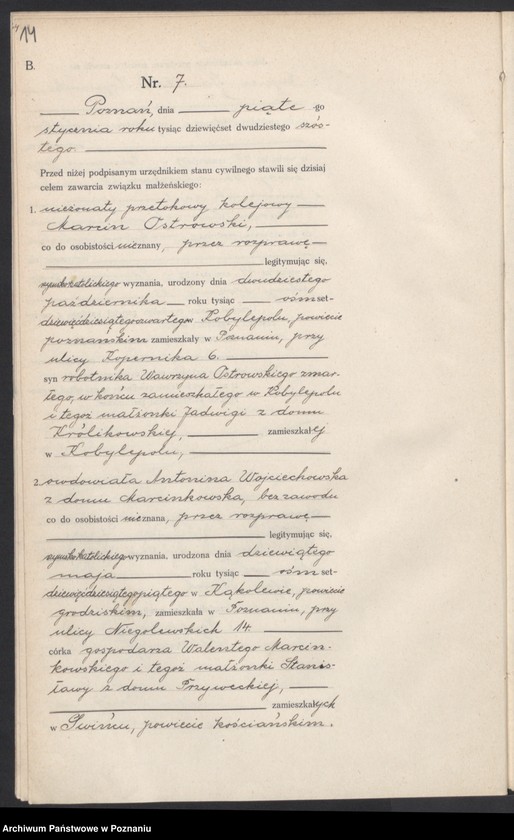 14
B.
Nr. 7.
Poznań, dnia piąte go
stycznia roku tysiąc dziewięćset dwudziestego szós-
tego
Przed niżej podpisanym urzędnikiem stanu cywilnego stawili się dzisiaj
celem zawarcia związku małżeńskiego:
1. nieżonaty przetokowy kolejowy
Marcin Ostrowski,
co do osobistości nieznany, przez rozprawę
legitymując się,
rzymskokatolickiego wyznania, urodzony dnia dwudziestego
października roku tysiąc ośmset-
dziewięćdziesiątegoczwartego w Kobylepolu, powiecie
poznańskim zamieszkały w Poznaniu, przy
ulicy Kopernika 6.
syn robotnika Wawrzyna Ostrowskiego zmar-
łego, w końcu zamieszkałego w Kobylepolu
i tegoż małżonki Jadwigi z domu
Królikowskiej, zamieszkałej
w Kobylepolu,
2. owdowiała Antonina Wojciechowska
z domu Marcinkowska, bez zawodu
co do osobistości nieznana, przez rozprawę
legitymując się,
rzymskokatolickiego wyznania, urodzona dnia dziewiątego
maja roku tysiąc ośmset-
dziewięćdziesiątegopiątego w Kąkolewie, powiecie
grodziskim, zamieszkała w Poznaniu, przy
ulicy Niegolewskich 14
córka gospodarza Walentego Marcin-
kowskiego i tegoż małżonki Stanis-
ławy z domu Przyweckiej,
zamieszkałych
w Świńcu, powiecie kościańskim.
Archiwum Państwowe w Poznaniu